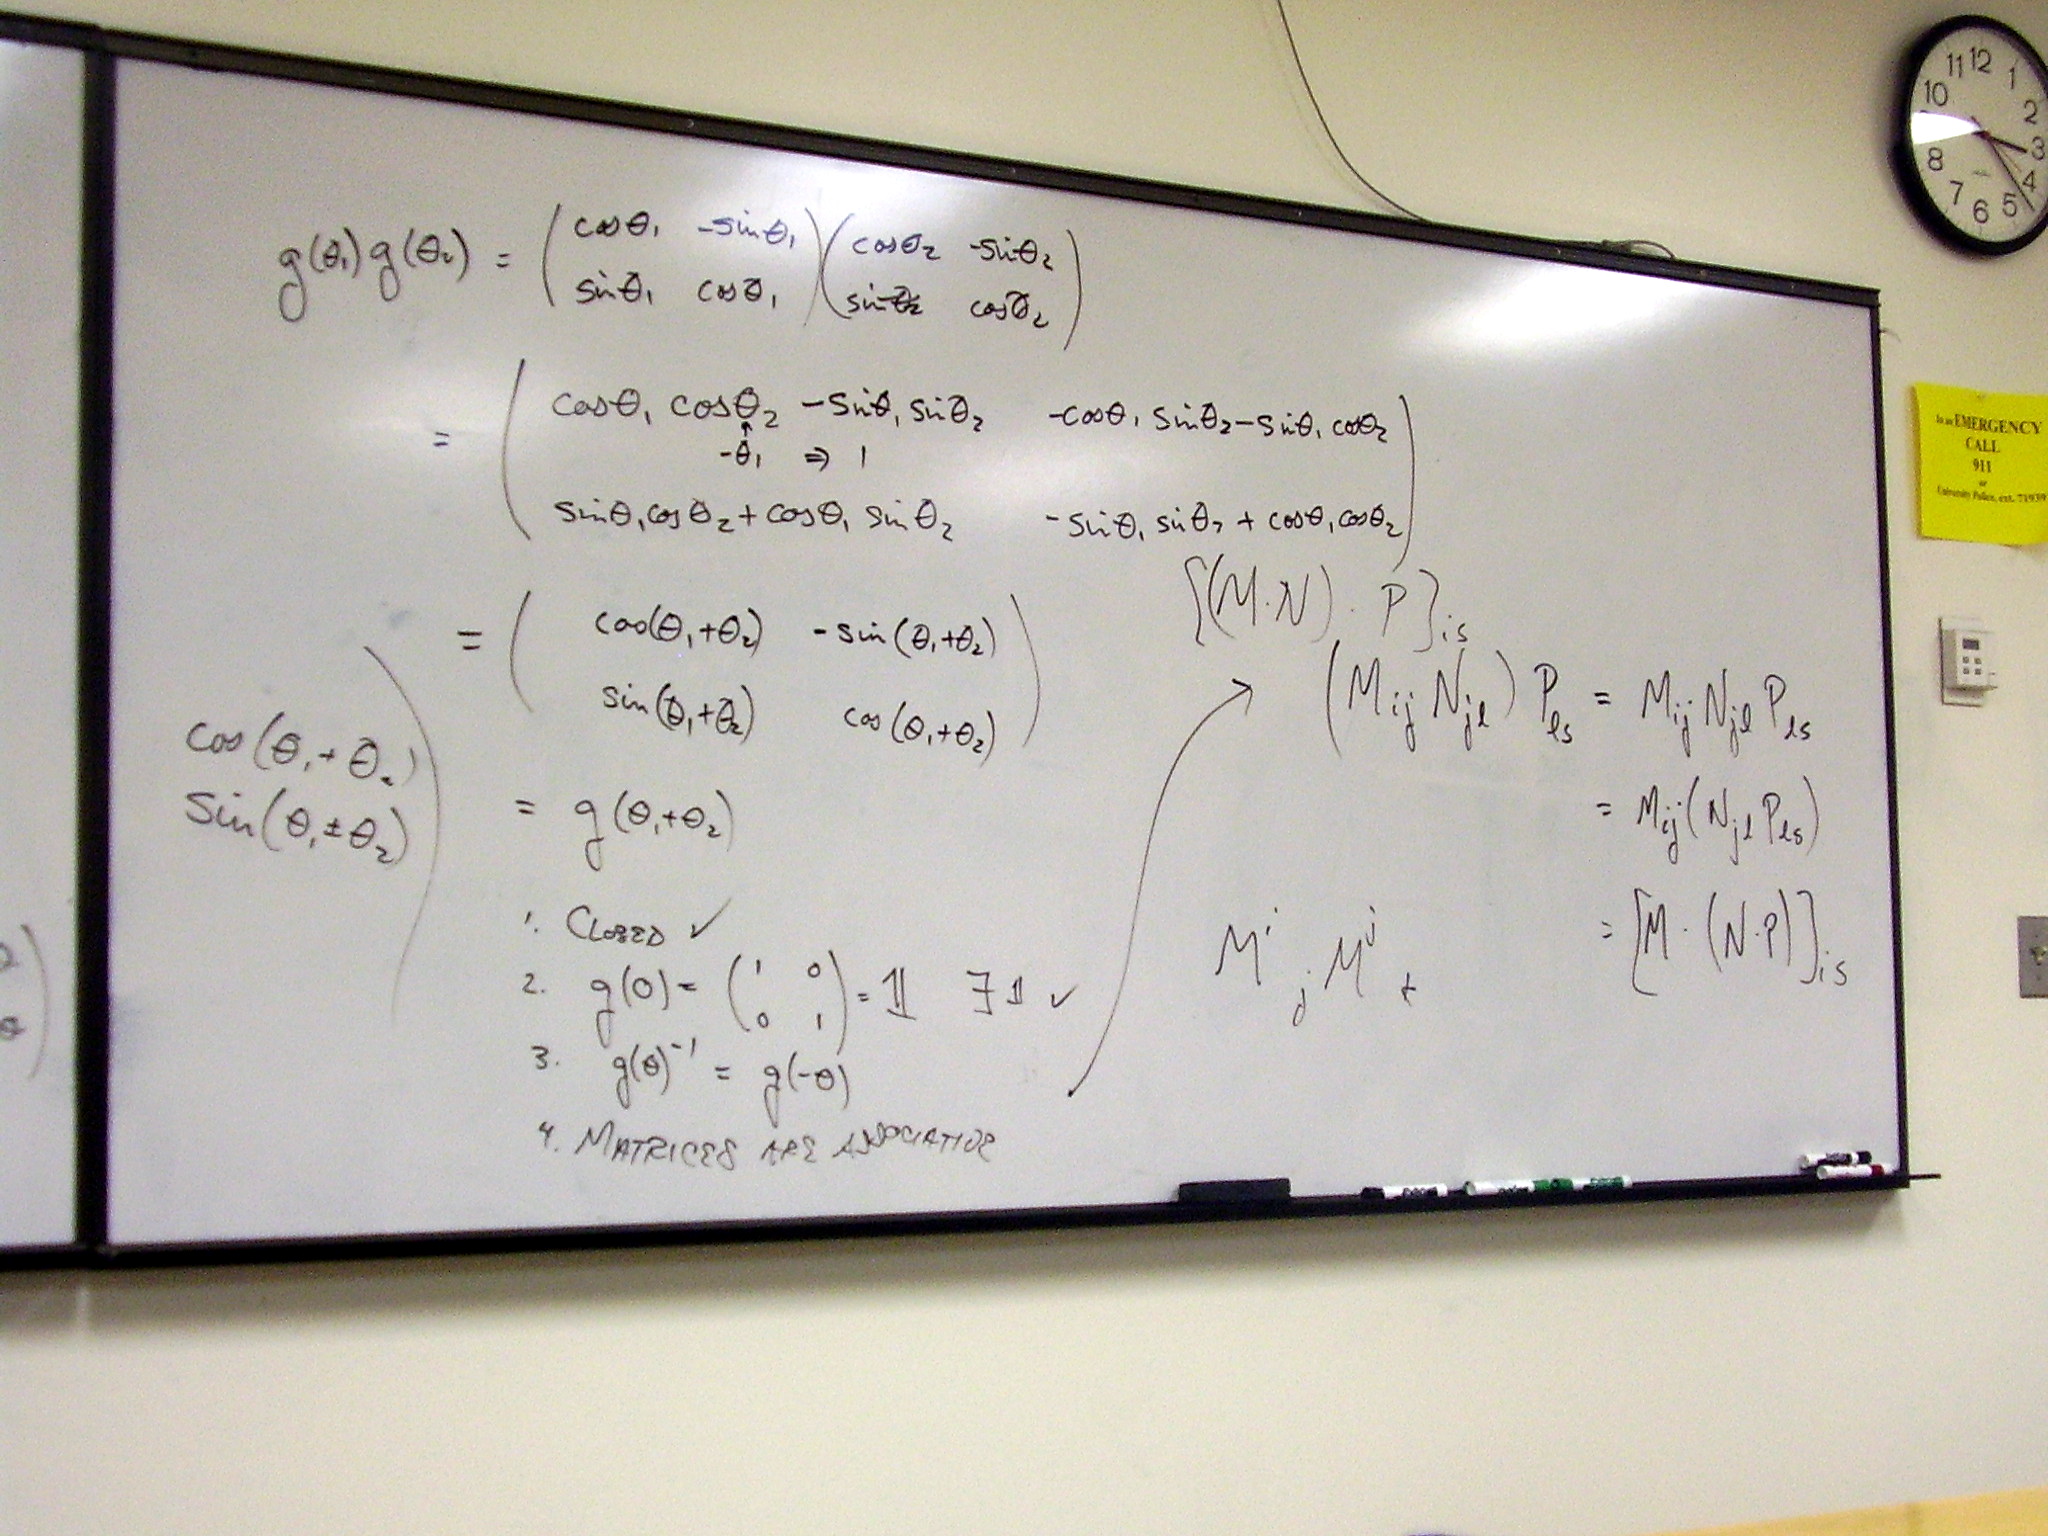 g(θ₁)g(θ₂) = (cosθ₁ -sinθ₁)(cosθ₂ -sinθ₂)
(sinθ₁ cosθ₁)(sinθ₂ cosθ₂)
= (cosθ₁ cosθ₂ -sinθ₁ sinθ₂ -cosθ₁ sinθ₂-sinθ₁ cosθ₂)
↑
-θ₁ ⇒ 1
sinθ₁cosθ₂+cosθ₁ sinθ₂ -sinθ₁ sinθ₂ + cosθ₁cosθ₂
= (cos(θ₁+θ₂) -sin(θ₁+θ₂))
(sin(θ₁+θ₂) cos(θ₁+θ₂))
= g(θ₁+θ₂)
cos(θ₁+θ₂)
Sin(θ₁±θ₂)
1. CLOSED ✓
2. g(0) = (1 0) = 𝟙 ∃ 𝟙 ✓
(0 1)
3. g(θ)⁻¹ = g(-θ)
4. MATRICES ARE ASSOCIATIVE
[(M·N)·P]is
(Mij Njl) Pls = Mij Njl Pls
= Mij(Njl Pls)
= [M·(N·P)]is
Mⁱj Mʲt
11 12 1
10 2
3
8 4
7 6 5
In an EMERGENCY
CALL
911
or
University Police, ext. 71939